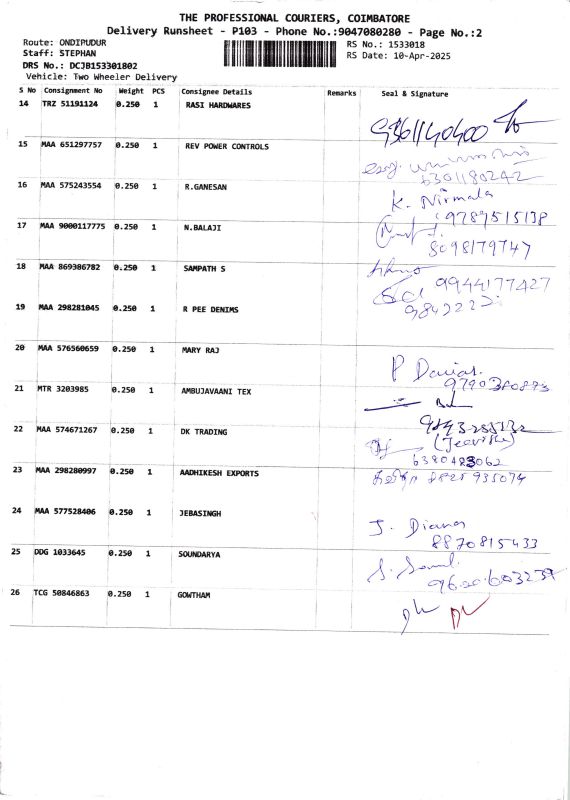 THE PROFESSIONAL COURIERS, COIMBATORE
Delivery Runsheet - P103 - Phone No.:9047080280 - Page No.:2
Route: ONDIPUDUR
RS No.: 1533018
Staff: STEPHAN
RS Date: 10-Apr-2025
DRS No.: DCJB153301802
Vehicle: Two Wheeler Delivery
S No Consignment No Weight PCS Consignee Details Remarks Seal & Signature
14 TRZ 51191124 0.250 1 RASI HARDWARES
9361140400
15 MAA 651297757 0.250 1 REV POWER CONTROLS
6301180242
16 MAA 575243554 0.250 1 R.GANESAN
K. Nirmala
9789515138
17 MAA 9000117775 0.250 1 N.BALAJI
8098179747
18 MAA 869386782 0.250 1 SAMPATH S
9944177427
19 MAA 298281045 0.250 1 R PEE DENIMS
20 MAA 576560659 0.250 1 MARY RAJ
21 MTR 3203985 0.250 1 AMBUJAVAANI TEX
22 MAA 574671267 0.250 1 DK TRADING
6380483062
23 MAA 298280997 0.250 1 AADHIKESH EXPORTS
24 MAA 577528406 0.250 1 JEBASINGH
J. Diana
8870815433
25 DDG 1033645 0.250 1 SOUNDARYA
26 TCG 50846863 0.250 1 GOWTHAM